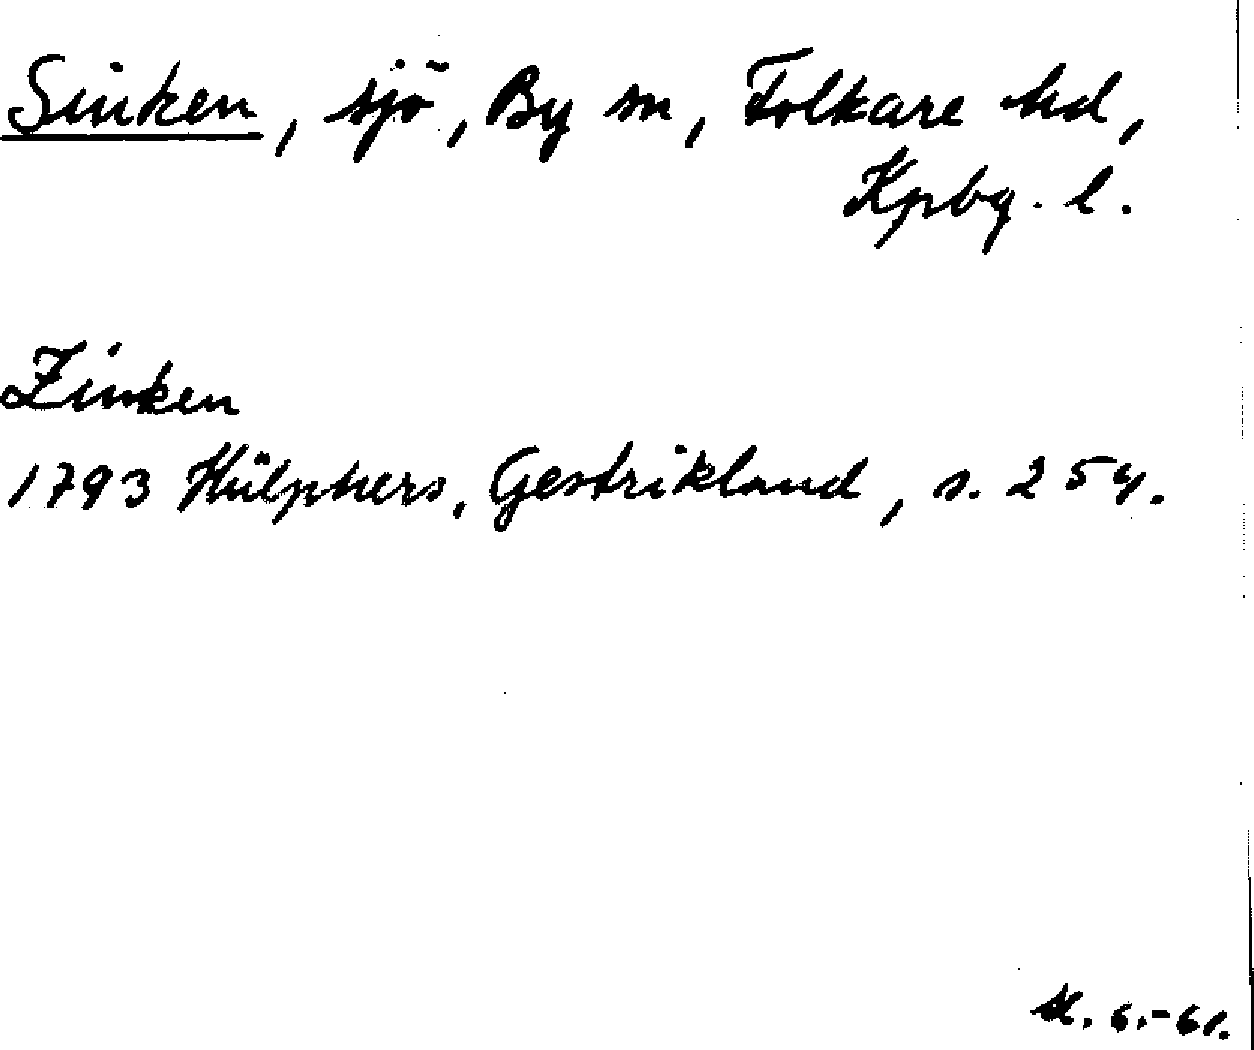 Sinken, sjö, By sn, Folkare hd,
Kpbg. l.
Zinken
1793 Hülphers, Gestrikland, s. 254.
6.-61.